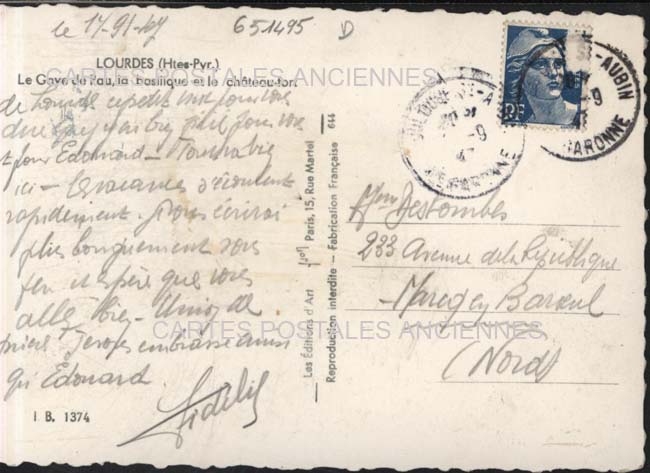 le 17-9-47
651495 D
LOURDES (Htes-Pyr.)
Le Gave de Pau, la basilique et le château-fort
CARTES POSTALES ANCIENNES
de Lourdes ce petit mot pour vous
dire que j'ai bien prié pour vous
et pour Edouard - Tout va bien
ici - Les vacances s'écoulent
rapidement. Je vous écrirai
plus longuement sous
peu et espère que vous
allez bien - Union de
prière Je vous embrasse ainsi
qu'Edouard
Fidelis
I B. 1374
Les Éditions d'Art Paris, 15, Rue Martel 644
Reproduction interdite - Fabrication Française
RF
ST-AUBIN
GARONNE
Mme Destombes
233 Avenue de la République
Marcq en Baroeul
(Nord)
CARTES POSTALES ANCIENNES